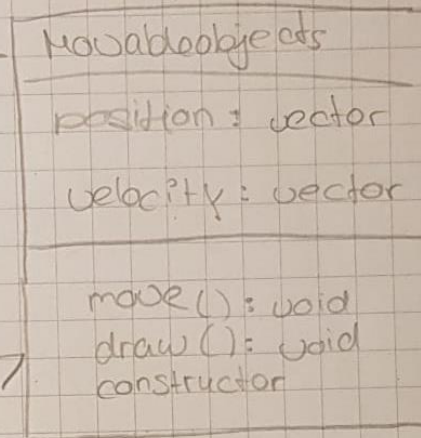 Movableobjects
position : vector
velocity : vector
move() : void
draw() : void
constructor